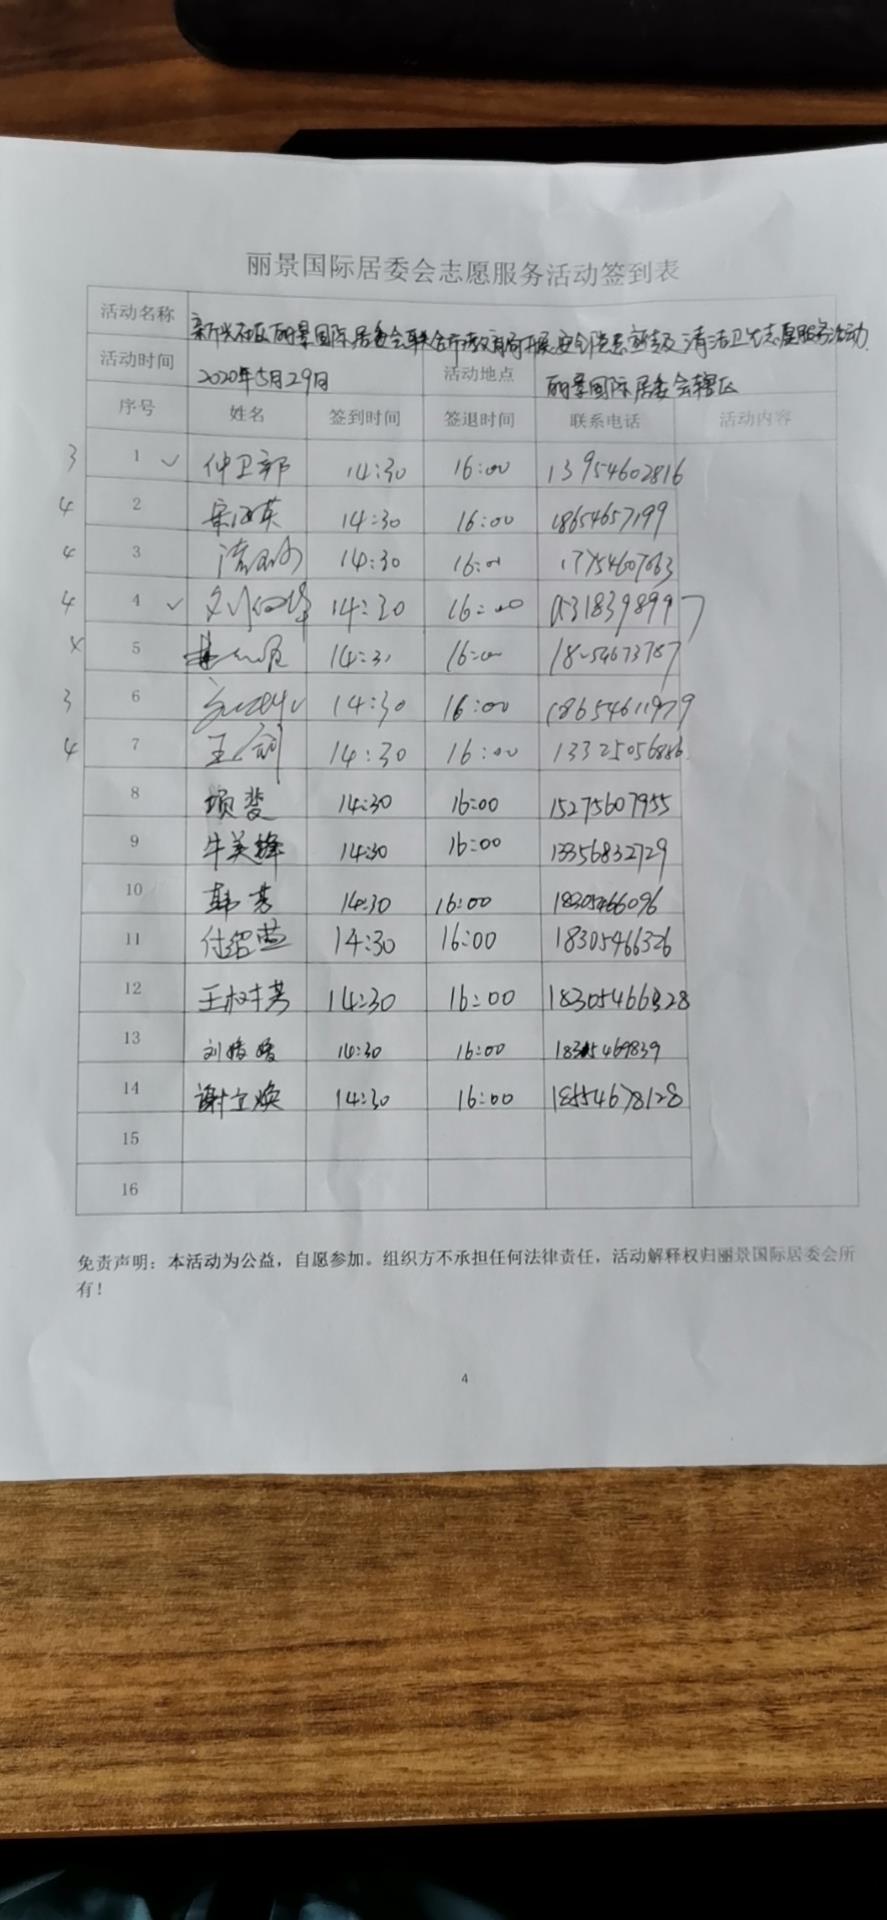 丽景国际居委会志愿服务活动签到表
活动名称 新兴社区丽景国际居委会联合市教育局开展安全隐患 清洁卫生志愿服务活动
活动时间 2020年5月29日 活动地点 丽景国际居委会辖区
序号 姓名 签到时间 签退时间 联系电话 活动内容
3 1 ✓ 仲卫郭 14:30 16:00 13954602816
4 2 14:30 16:00 18654657199
4 3 14:30 16:00
4 4 ✓ 14:30 16:00
5 14:30 16:00
3 6 14:30 16:00 18654611979
4 7 王 14:30 16:00 13325056886
8 项斐 14:30 16:00 15275607955
9 牛美 14:30 16:00 13356832729
10 韩芳 14:30 16:00 18305466096
11 付绍 14:30 16:00 18305466326
12 王树芳 14:30 16:00 18305466328
13 刘 14:30 16:00 18305469839
14 谢立焕 14:30 16:00 18554678128
15
16
免责声明：本活动为公益，自愿参加。组织方不承担任何法律责任，活动解释权归丽景国际居委会所
有！
4